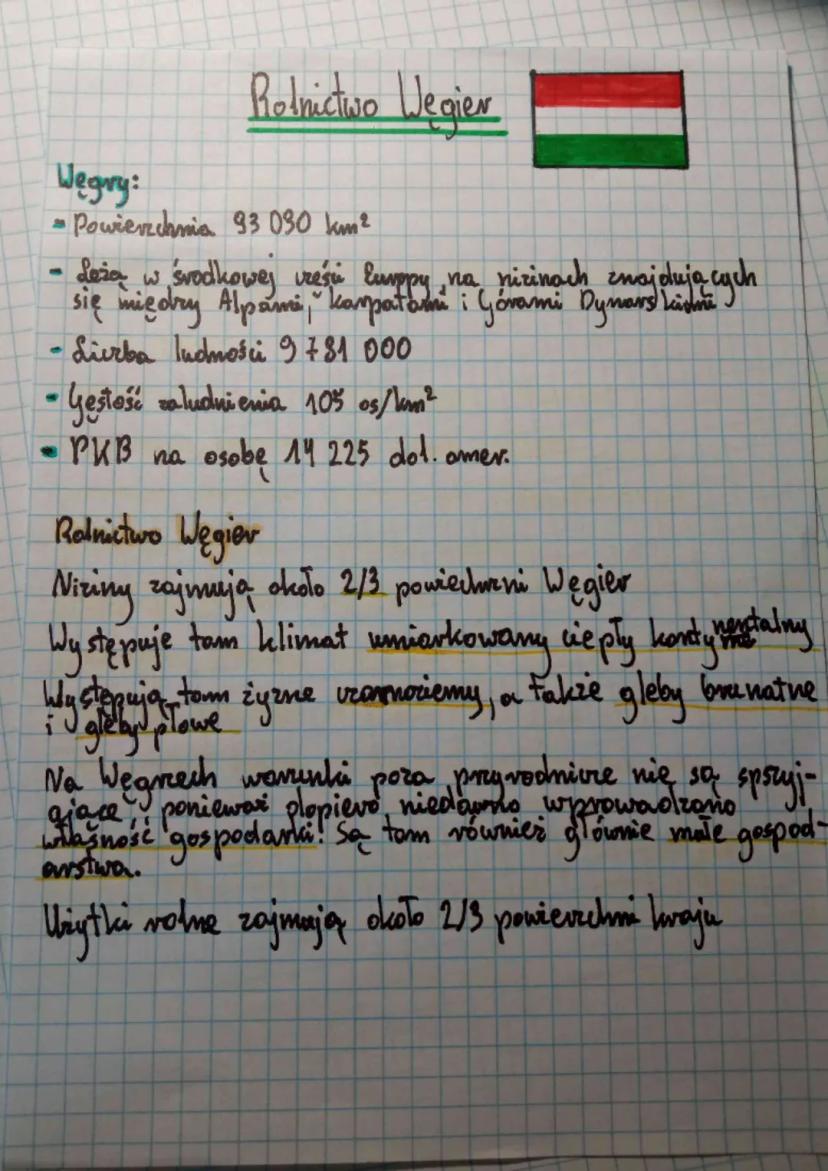 Rolnictwo Węgier
Węgry:
- Powierzchnia 93 030 km²
- Leżą w środkowej części Europy na nizinach znajdujących
się między Alpami, Karpatami i Górami Dynarskimi
- Liczba ludności 9 781 000
- Gęstość zaludnienia 105 os/km²
- PKB na osobę 14 225 dol. amer.
Rolnictwo Węgier
Niziny zajmują około 2/3 powiechrzni Węgier
Występuje tam klimat umiarkowany ciepły kontynentalny
Występują tam żyzne czarnoziemy, a także gleby brunatne
i gleby płowe
Na Węgrzech warunki poza przyrodnicze nie są sprzyj-
ające, ponieważ dopiero niedawno wprowadzono
własność gospodarki! Są tam również głównie małe gospod-
arstwa.
Użytki rolne zajmują około 2/3 powierzchni kraju